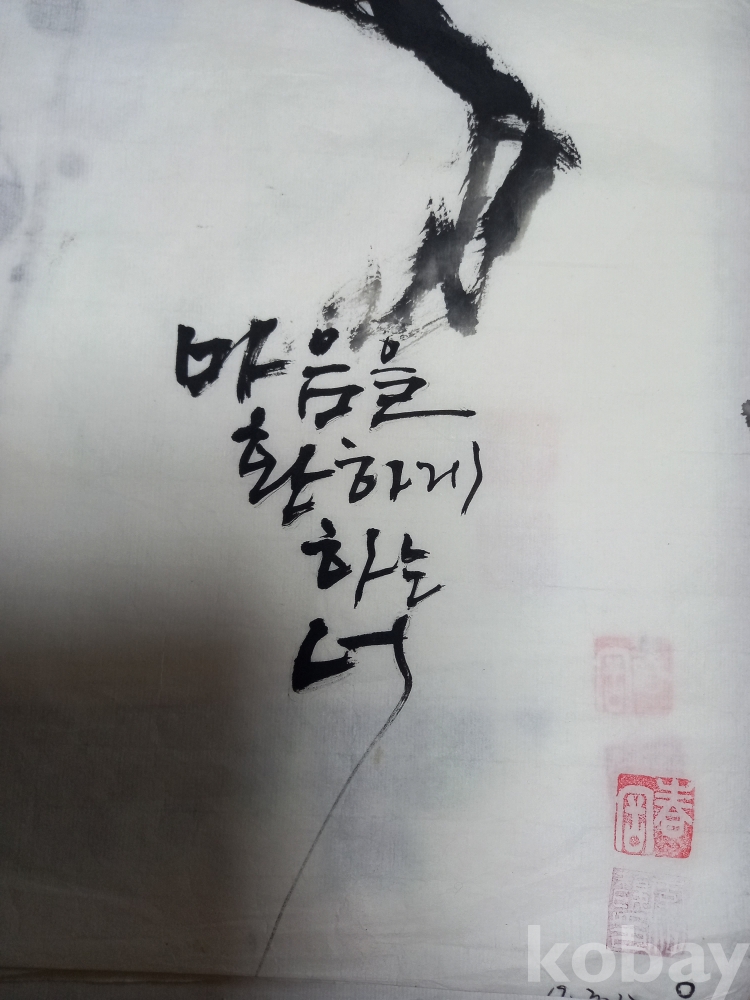 마음을
환하게
하는
너
春
kobay